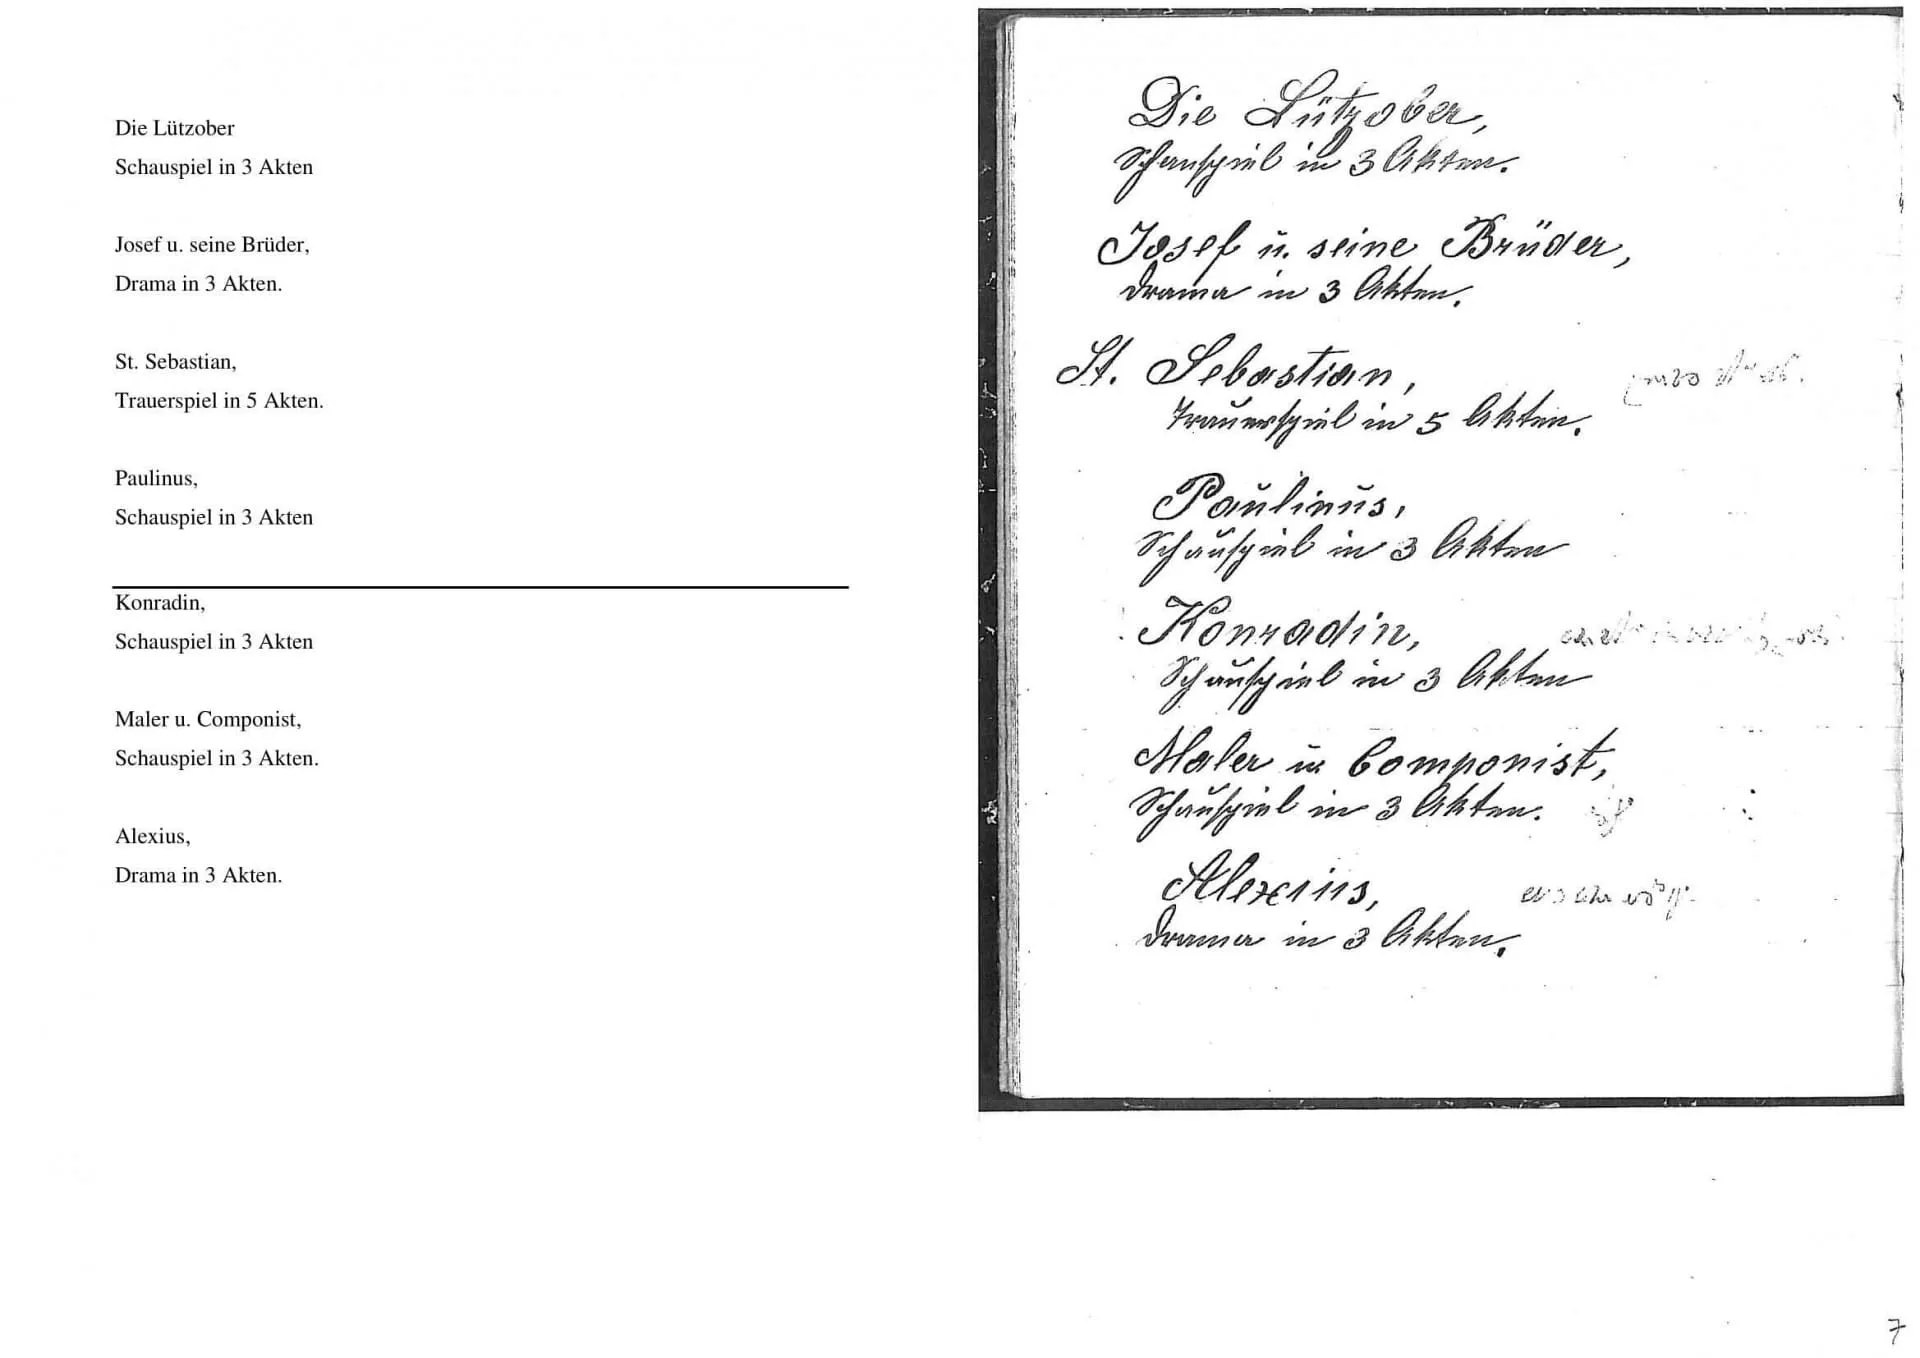 Die Lützober
Schauspiel in 3 Akten
Josef u. seine Brüder,
Drama in 3 Akten.
St. Sebastian,
Trauerspiel in 5 Akten.
Paulinus,
Schauspiel in 3 Akten
Konradin,
Schauspiel in 3 Akten
Maler u. Componist,
Schauspiel in 3 Akten.
Alexius,
Drama in 3 Akten.
Die Lützober,
Schauspiel in 3 Akten.
Josef u. seine Brüder,
Drama in 3 Akten.
St. Sebastian,
Trauerspiel in 5 Akten.
Paulinus,
Schauspiel in 3 Akten
Konradin,
Schauspiel in 3 Akten
Maler u. Componist,
Schauspiel in 3 Akten.
Alexius,
Drama in 3 Akten.
7